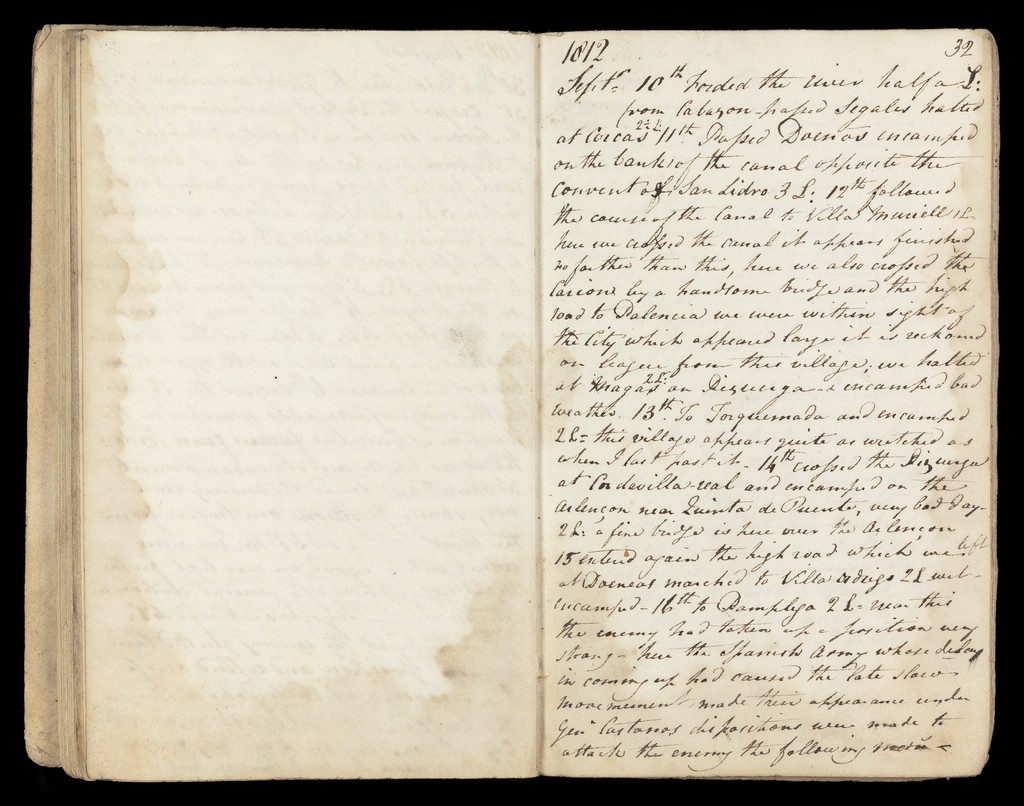 1812
32
Septr. 10th Forded the river half a L:
from Cabazon passed Segales halted
at Corcas 2 L. 11th. Passed Duenas encamped
on the banks of the canal opposite the
Convent of San Isidro 3 L. 12th followed
the course of the Canal to Villa Muriell 1 L
here we crossed the canal it appears finished
no farther than this, here we also crossed the
Carion by a handsome bridge and the high
road to Palencia we were within sight of
the City which appeared large it is reckoned
on league from this village, we halted
at Magas 2 L. on Pizuerga & encamped bad
weather. 13th. To Torquemada and encamped
2 L= this village appears quite as wretched as
when I last past it - 14th crossed the Pizuerga
at Cordavilla real and encamped on the
Arlencon near Quinta de Puente, very bad day-
2 L: a fine bridge is here over the Arlencon
15 enterd again the high road which we left
at Doeneas marched to Villa odrigo 2 L wet-
encamped - 16th to Pampliga 2 L= near this
the enemy had taken up a position very
strong - here the Spanish Army whose delay
in coming up had caused the late slow
movement made their appearance under
Genl Castanos dispositions were made to
attack the enemy the following